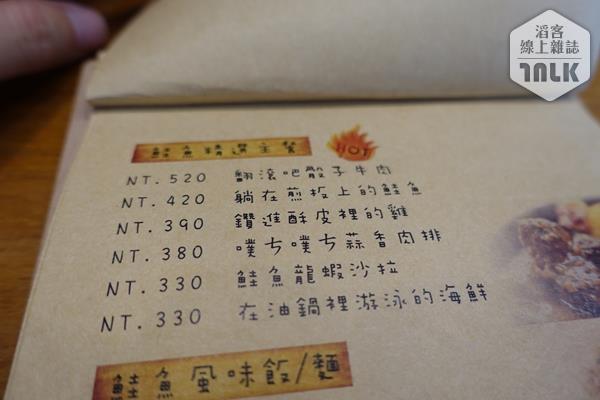 滔客
線上雜誌
TALK
鮭魚精選主餐 HOT
NT. 520 翻滾吧骰子牛肉
NT. 420 躺在煎板上的鮭魚
NT. 390 鑽進酥皮裡的雞
NT. 380 噗ㄘ噗ㄘ蒜香肉排
NT. 330 鮭魚龍蝦沙拉
NT. 330 在油鍋裡游泳的海鮮
鮭魚風味飯/麵